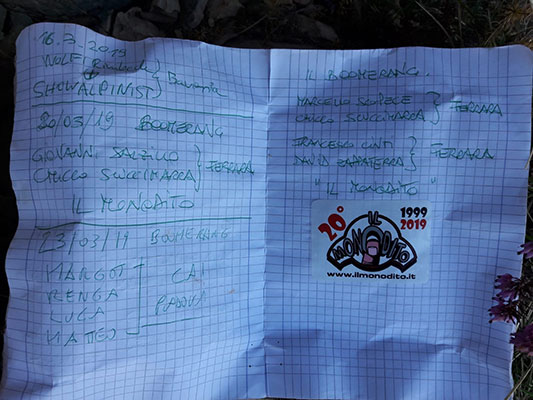 16.3.2019
WOLFI
SHOWALPINIST) Bavaria
20/03/19 BOOMERANG
GIOVANNI SALZILLO
CHICCO SUCCIMARRA } FERRARA
IL MONODITO
23/03/19 BOOMERANG
MARGOT
RENGA
LUCA
MATTEO
CAI
PADOVA
IL BOOMERANG.
MARCELLO
CHICCO SUCCIMARRA } FERRARA
FRANCESCO CONTI
DAVID ZAPPATERRA } FERRARA
"IL MONODITO"
20° IL 1999
MONODITO 2019
www.ilmonodito.it